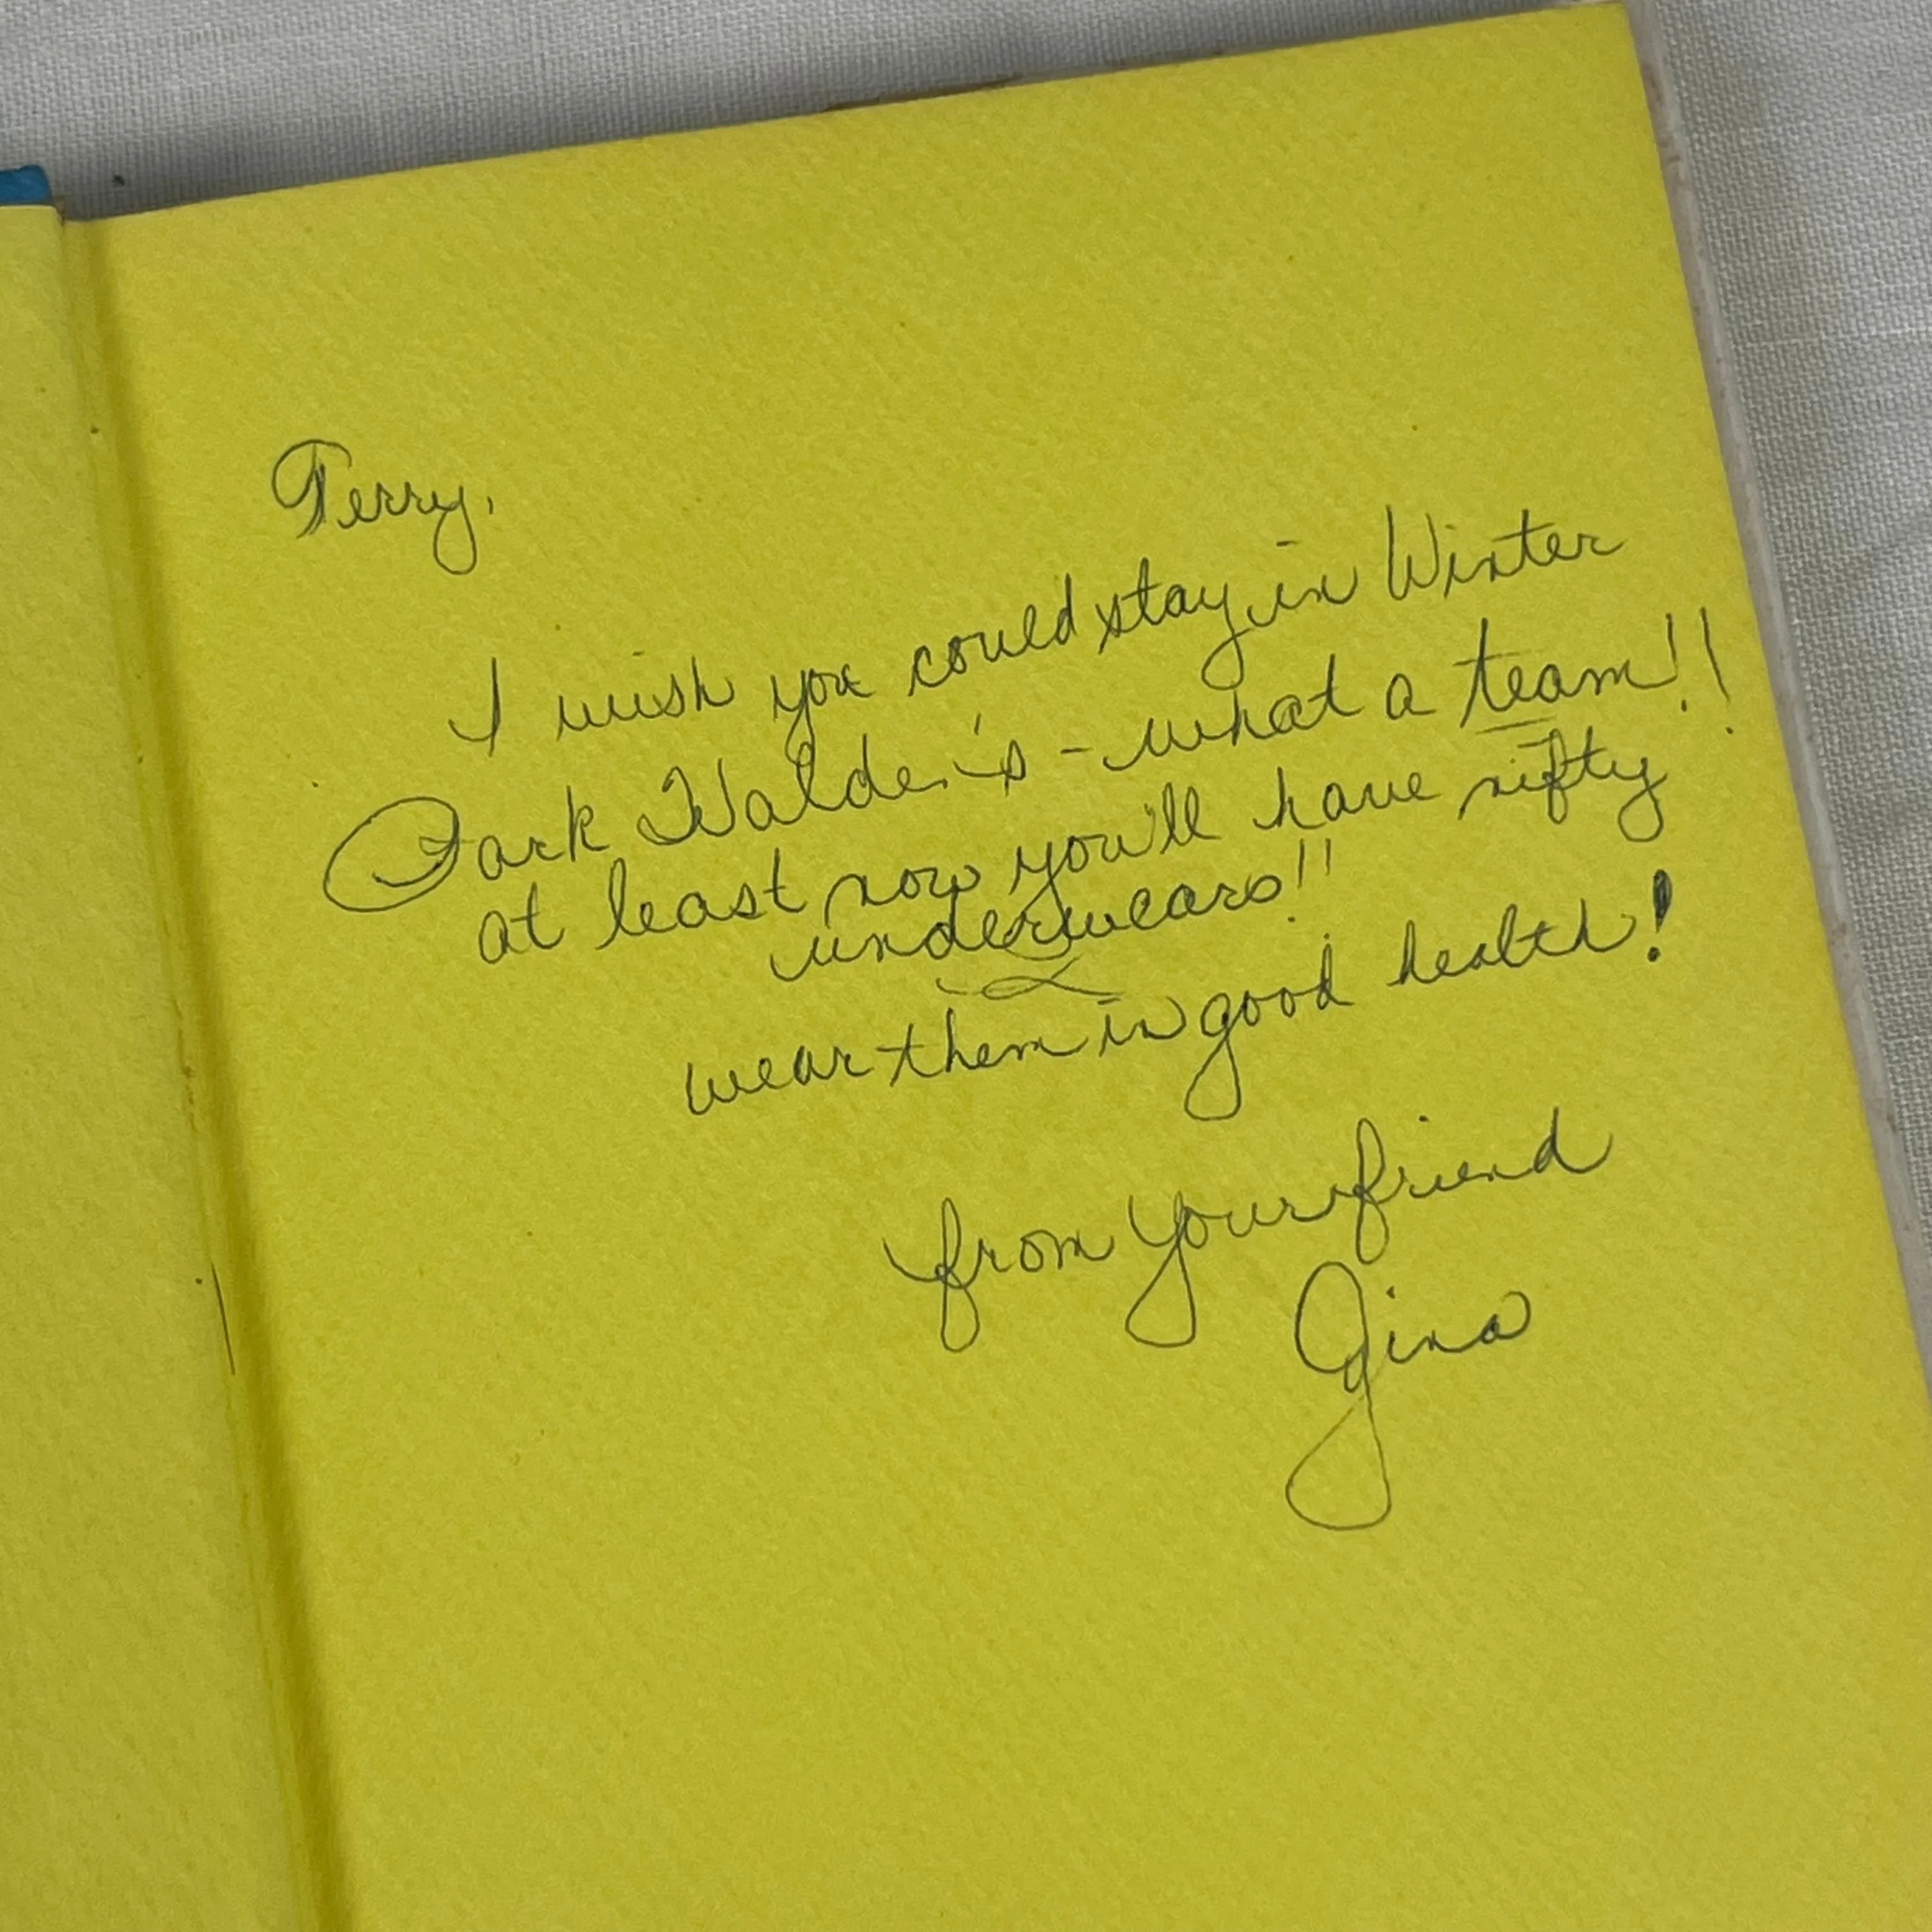 Terry,
I wish you could stay in Winter
Park Walden's - what a team!!
at least now you'll have nifty
underwears!!
wear them in good health!
from your friend
Gina